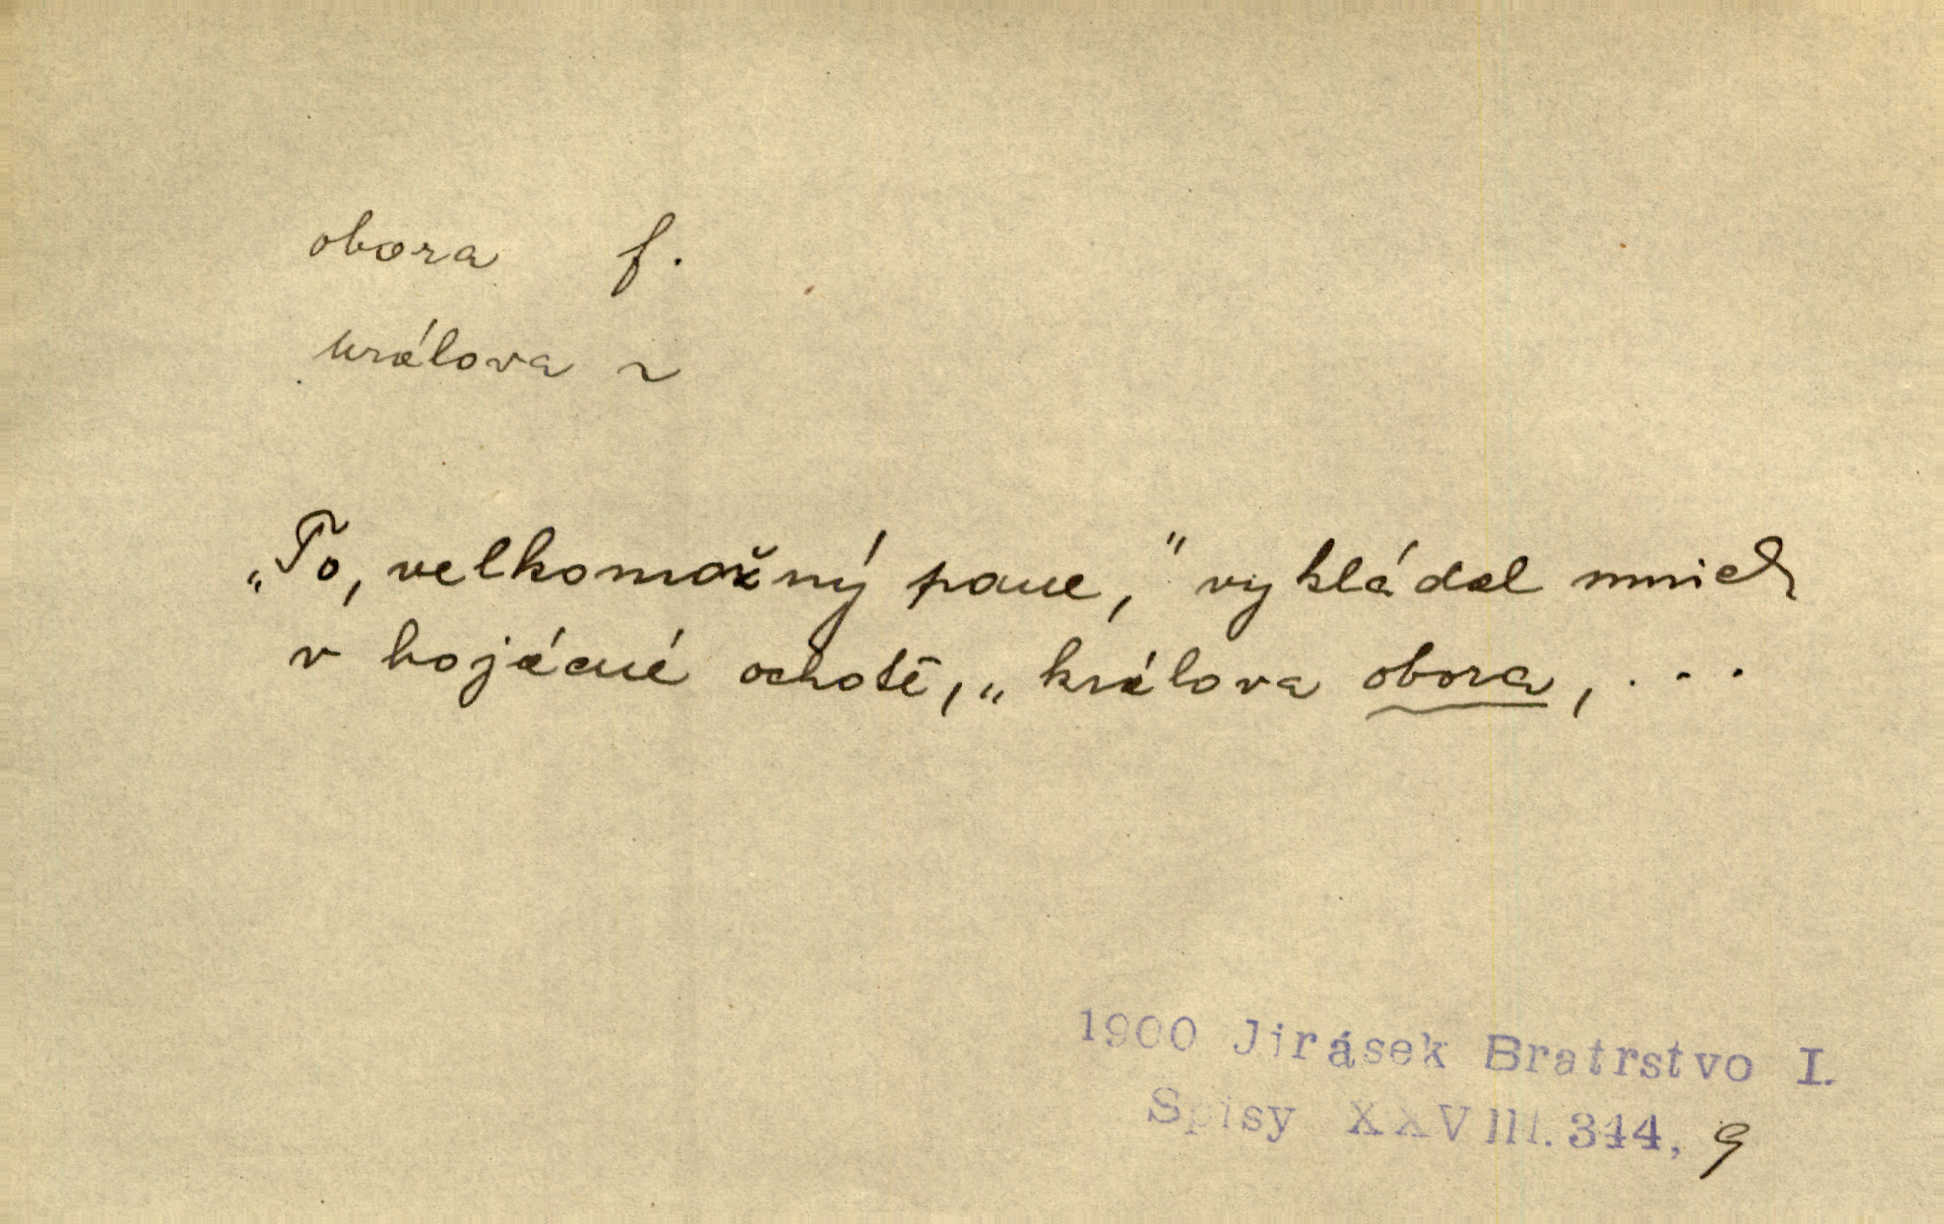 obora f.
králova ~
„To, velkomožný pane,“ vykládal mnich
v hojácné ochotě, „králova obora, . . .
1900 Jirásek Bratrstvo I.
Spisy XXVIII. 344, 9